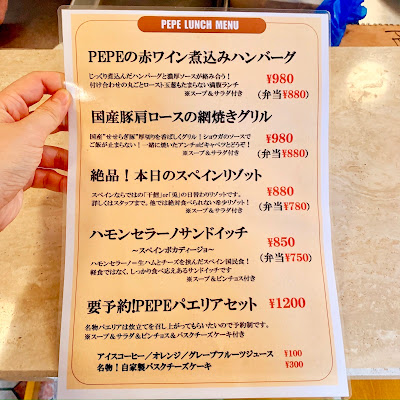 PEPE LUNCH MENU
PEPEの赤ワイン煮込みハンバーグ
じっくり煮込んだハンバーグと濃厚ソースが絡み合う!
付け合わせの丸ごとロースト玉葱もたまらない満腹ランチ
※スープ&サラダ付き
¥980
(弁当¥880)
国産豚肩ロースの網焼きグリル
国産"せせらぎ豚"厚切りを香ばしくグリル!ショウガのソースで
ご飯が止まらない! 一緒に焼いたアンチョビキャベツとどうぞ!
※スープ&サラダ付き
¥980
(弁当¥880)
絶品!本日のスペインリゾット
スペインならではの「干鱈」or「兎」の日替わりリゾットです。
詳しくはスタッフまで。他では絶対食べられない希少リゾット!
※スープ&サラダ付き
¥880
(弁当¥780)
ハモンセラーノサンドイッチ
~スペインボカディージョ~
ハモンセラーノ=生ハムとチーズを挟んだスペイン国民食!
軽食ではなく、しっかり食べ応えあるサンドイッチです
※スープ&ピンチョス付き
¥850
(弁当¥750)
要予約!PEPEパエリアセット ¥1200
名物パエリアは炊立てを召し上がってもらいたいので予約制です。
※スープ&サラダ&ピンチョス&バスクチーズケーキ付き
アイスコーヒー/オレンジ/グレープフルーツジュース ¥100
名物!自家製バスクチーズケーキ ¥300